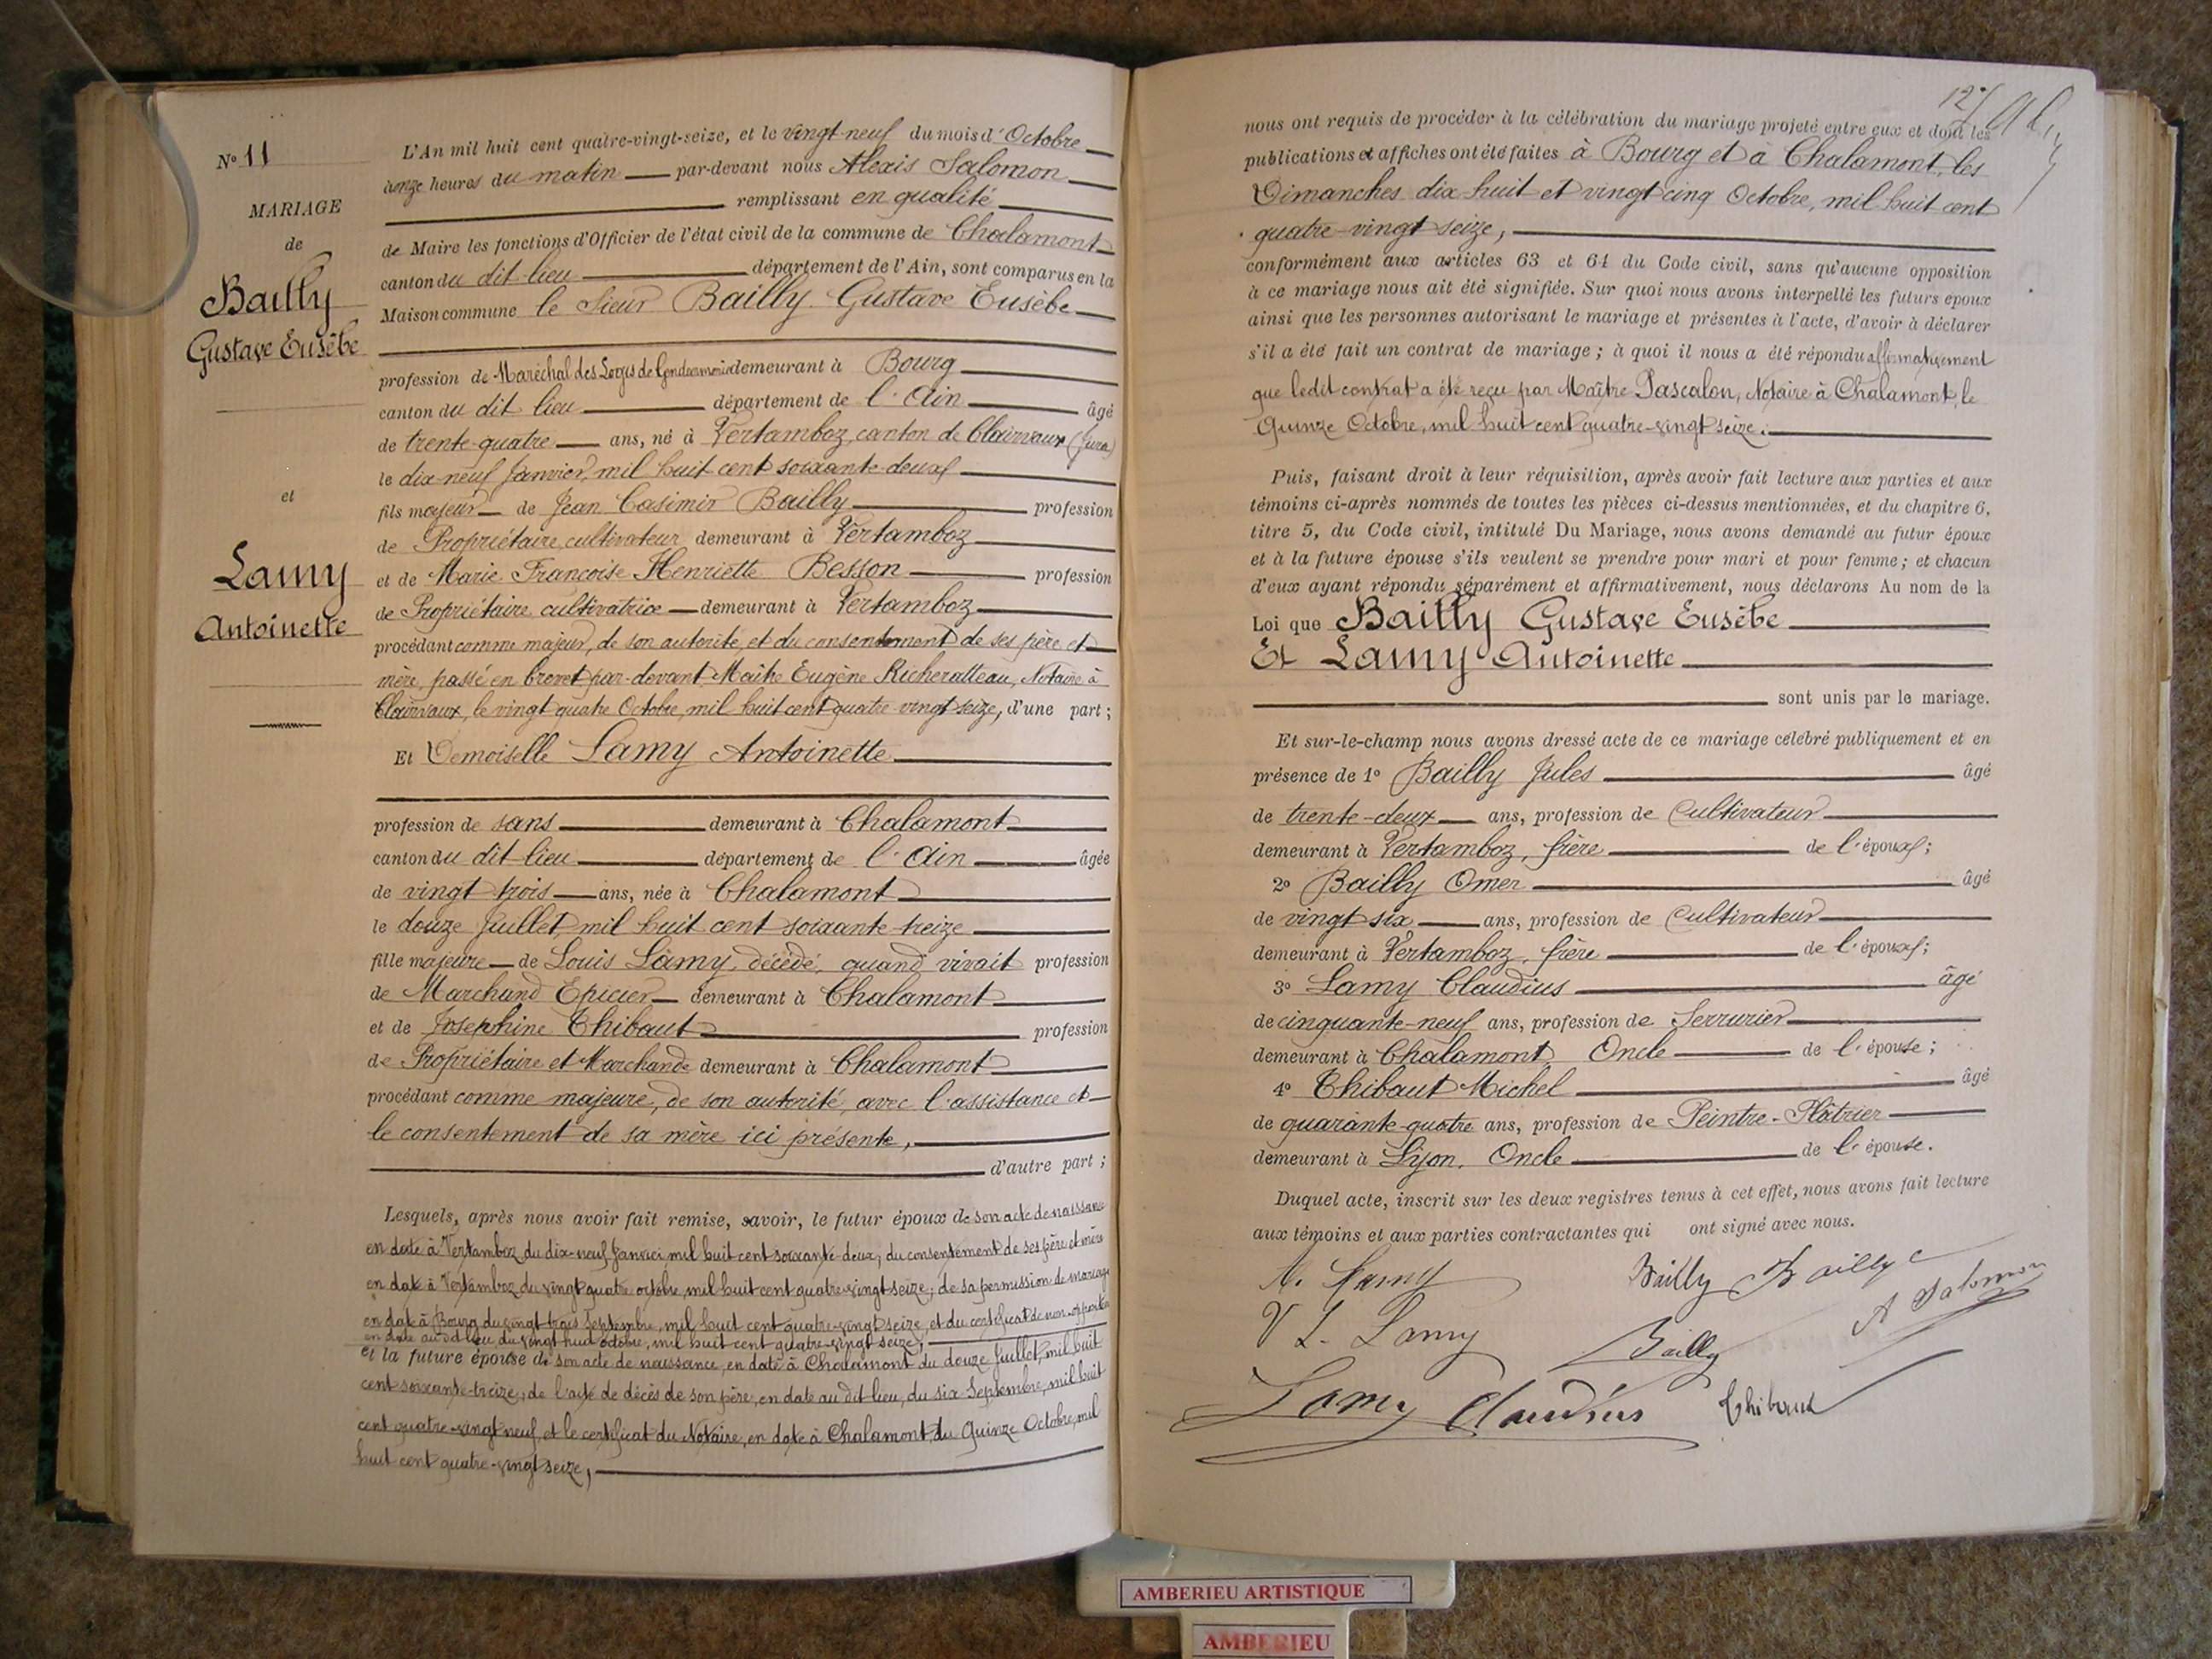 Nº 11
MARIAGE
de
Bailly
Gustave Eusèbe
et
Lamy
Antoinette
L'An mil huit cent quatre-vingt-seize, et le vingt-neuf du mois d'Octobre
à onze heures du matin par-devant nous Alexis Salomon
remplissant en qualité
de Maire les fonctions d'Officier de l'état civil de la commune de Chalamont
canton du dit lieu département de l'Ain, sont comparus en la
Maison commune le Sieur Bailly Gustave Eusèbe
profession de Maréchal des Logis de Gendarmerie demeurant à Bourg
canton du dit lieu département de l'Ain âgé
de trente-quatre ans, né à Vertamboz, canton de Clairvaux (Jura)
le dix-neuf Janvier, mil huit cent soixante-deux
fils majeur de Jean Casimir Bailly profession
de Propriétaire cultivateur demeurant à Vertamboz
et de Marie Françoise Henriette Besson profession
de Propriétaire cultivatrice demeurant à Vertamboz
procédant comme majeur, de son autorité, et du consentement de ses père et
mère, passé en brevet par-devant Maître Eugène Richeratteau, Notaire à
Clairvaux, le vingt quatre Octobre, mil huit cent quatre-vingt seize, d'une part ;
Et Demoiselle Lamy Antoinette
profession de sans demeurant à Chalamont
canton du dit-lieu département de l'Ain âgée
de vingt trois ans, née à Chalamont
le douze Juillet, mil huit cent soixante-treize
fille majeure de Louis Lamy, décédé, quand vivait profession
de Marchand Epicier demeurant à Chalamont
et de Josephine Thibaut profession
de Propriétaire et Marchande demeurant à Chalamont
procédant comme majeure, de son autorité, avec l'assistance et
le consentement de sa mère ici présente,
d'autre part ;
Lesquels, après nous avoir fait remise, savoir, le futur époux de son acte de naissance
en date à Vertamboz du dix-neuf Janvier mil huit cent soixante-deux, du consentement de ses père et mère
en date à Vertamboz du vingt quatre octobre mil huit cent quatre-vingt seize; de sa permission de mariage
en date à Bourg du vingt-trois Septembre, mil huit cent quatre-vingt seize, et du certificat de non-opposition
en date au dit lieu du vingt huit octobre, mil huit cent quatre-vingt seize;
et la future épouse de son acte de naissance, en date à Chalamont du douze Juillet, mil huit
cent soixante-treize; de l'acte de décès de son père, en date au dit lieu, du six Septembre, mil huit
cent quatre-vingt neuf, et le certificat du Notaire, en date à Chalamont, du Quinze Octobre, mil
huit cent quatre-vingt seize,
nous ont requis de procéder à la célébration du mariage projeté entre eux et dont les
publications et affiches ont été faites à Bourg et à Chalamont, les
Dimanches dix huit et vingt-cinq Octobre, mil huit cent
quatre-vingt seize,
conformément aux articles 63 et 64 du Code civil, sans qu'aucune opposition
à ce mariage nous ait été signifiée. Sur quoi nous avons interpellé les futurs époux
ainsi que les personnes autorisant le mariage et présentes à l'acte, d'avoir à déclarer
s'il a été fait un contrat de mariage ; à quoi il nous a été répondu affirmativement
que ledit contrat a été reçu par Maître Pascalon, Notaire à Chalamont, le
Quinze Octobre, mil huit cent quatre-vingt seize.
Puis, faisant droit à leur réquisition, après avoir fait lecture aux parties et aux
témoins ci-après nommés de toutes les pièces ci-dessus mentionnées, et du chapitre 6,
titre 5, du Code civil, intitulé Du Mariage, nous avons demandé au futur époux
et à la future épouse s'ils veulent se prendre pour mari et pour femme ; et chacun
d'eux ayant répondu séparément et affirmativement, nous déclarons Au nom de la
Loi que Bailly Gustave Eusèbe
Et Lamy Antoinette
sont unis par le mariage.
Et sur-le-champ nous avons dressé acte de ce mariage célebré publiquement et en
présence de 1º Bailly Jules âgé
de trente-deux ans, profession de Cultivateur
demeurant à Vertamboz, frère de l'époux ;
2º Bailly Omer âgé
de vingt six ans, profession de Cultivateur
demeurant à Vertamboz, frère de l'époux ;
3º Lamy Claudius âgé
de cinquante-neuf ans, profession de Serrurier
demeurant à Chalamont, Oncle de l'épouse ;
4º Thibaut Michel âgé
de quarante-quatre ans, profession de Peintre-Plâtrier
demeurant à Lyon, Oncle de l'épouse.
Duquel acte, inscrit sur les deux registres tenus à cet effet, nous avons fait lecture
aux témoins et aux parties contractantes qui ont signé avec nous.
A. Lamy Bailly Bailly
V L. Lamy Bailly A Salomon
Lamy Claudius Thibaut
AMBERIEU ARTISTIQUE
AMBERIEU